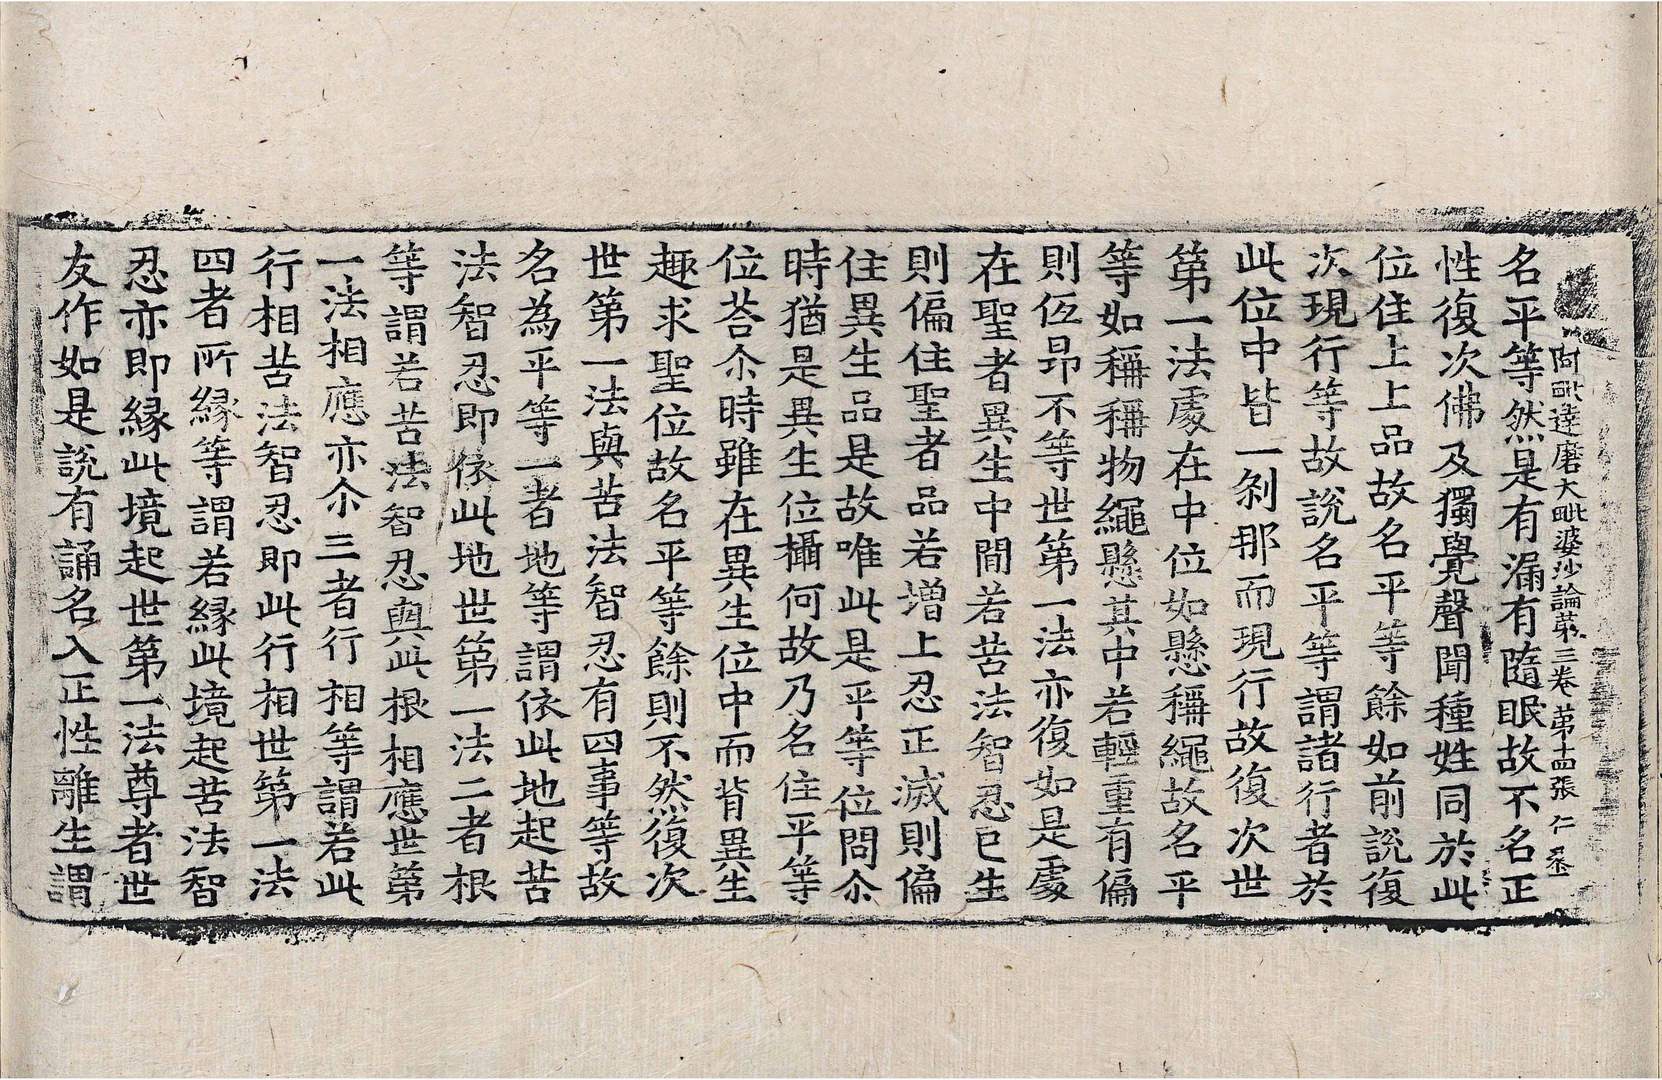 阿毗達磨大毗婆沙論第三卷 第十四張 仁
名平等然是有漏有隨眠故不名正
性復次佛及獨覺聲聞種姓同於此
位住上上品故名平等餘如前說復
次現行等故說名平等謂諸行者於
此位中皆一剎那而現行故復次世
第一法處在中位如懸稱繩故名平
等如稱稱物繩懸其中若輕重有偏
則仾昂不等世第一法亦復如是處
在聖者異生中間若苦法智忍已生
則偏住聖者品若增上忍正滅則偏
住異生品是故唯此是平等位問尒
時猶是異生位攝何故乃名住平等
位荅尒時雖在異生位中而背異生
趣求聖位故名平等餘則不然復次
世第一法與苦法智忍有四事等故
名為平等一者地等謂依此地起苦
法智忍即依此地世第一法二者根
等謂若苦法智忍與此根相應世第
一法相應亦尒三者行相等謂若此
行相苦法智忍即此行相世第一法
四者所緣等謂若緣此境起苦法智
忍亦即緣此境起世第一法尊者世
友作如是說有誦名入正性離生謂